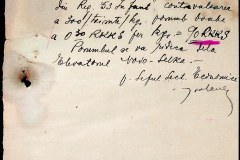 din Reg. 53 Inf. contravaloarea
a 300/treisute/kg. porumb boabe
a 0.30 RKKS per kgr. = 90 RKKS
Porumbul se va ridica dela
Elevatorul Novo-Selka.—
Șeful Sect. Economice